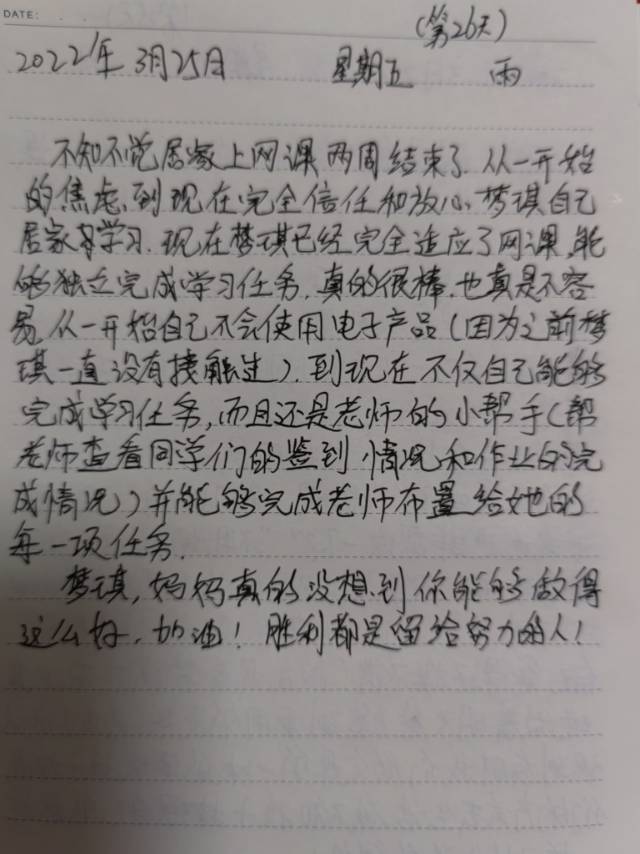 DATE:
(第26天)
2022年 3月25日 星期五 雨
不知不觉居家上网课两周结束了.从一开始
的焦虑,到现在完全信任和放心,梦琪自己
居家学习.现在梦琪已经完全适应了网课,能
够独立完成学习任务,真的很棒.也真是不容
易,从一开始自己不会使用电子产品(因为之前梦
琪一直没有接触过).到现在不仅自己能够
完成学习任务,而且还是老师的小帮手(帮
老师查看同学们的签到情况和作业的完
成情况)并能够完成老师布置给她的
每一项任务.
梦琪,妈妈真的没想到你能够做得
这么好,加油!胜利都是留给努力的人!